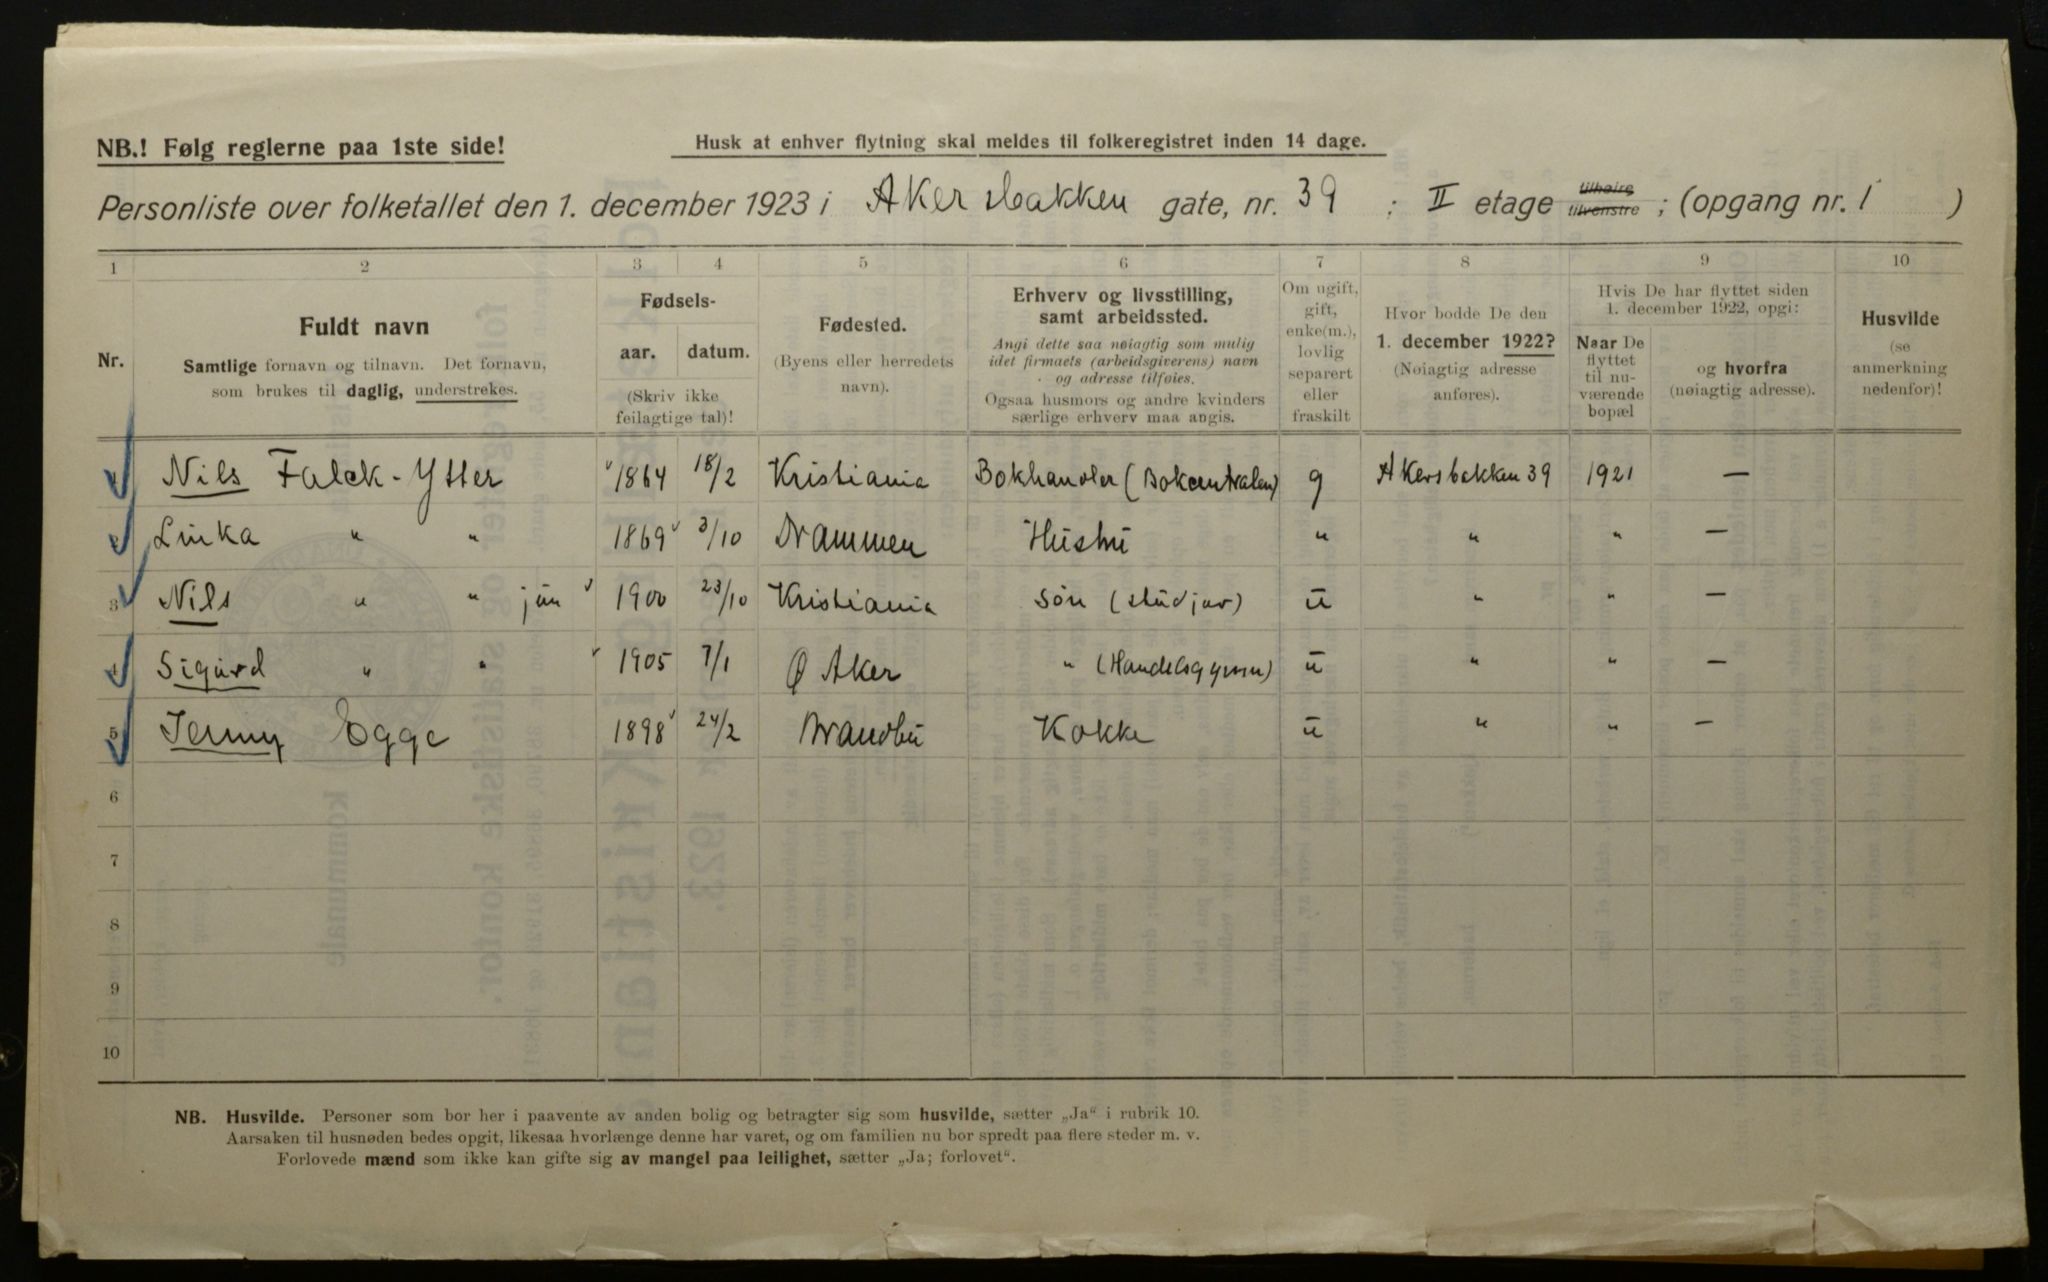 NB.! Følg reglerne paa 1ste side!
Husk at enhver flytning skal meldes til folkeregistret inden 14 dage.
Personliste over folketallet den 1. december 1923 i Akersbakken gate, nr. 39 ; II etage tilhøire tilvenstre ; (opgang nr. 1 )
1 2 3 4 5 6 7 8 9 10
Nr.
Fuldt navn
Samtlige fornavn og tilnavn. Det fornavn,
som brukes til daglig, understrekes.
Fødsels-
aar. datum.
(Skriv ikke
feilagtige tal)!
Fødested.
(Byens eller herredets
navn).
Erhverv og livsstilling,
samt arbeidssted.
Angi dette saa nøiagtig som mulig
idet firmaets (arbeidsgiverens) navn
og adresse tilføies.
Ogsaa husmors og andre kvinders
særlige erhverv maa angis.
Om ugift,
gift,
enke(m.),
lovlig
separert
eller
fraskilt
Hvor bodde De den
1. december 1922?
(Nøiagtig adresse
anføres).
Hvis De har flyttet siden
1. december 1922, opgi:
Naar De
flyttet
til nu-
værende
bopæl
og hvorfra
(nøiagtig adresse).
Husvilde
(se
anmerkning
nedenfor)!
1 Nils Falck-Ytter 1864 18/2 Kristiania Bokhandler (Bokcentralen) g Akersbakken 39 1921 —
2 Linka " " 1869 3/10 Drammen Husfru " " " —
3 Nils " " jun 1900 23/10 Kristiania Søn (studjur) u " " —
4 Sigurd " " 1905 7/1 Ø Aker " (Handelsgymn) u " " —
5 Jenny Egge 1898 24/2 Brandbu Kokke u " " —
6
7
8
9
10
NB. Husvilde. Personer som bor her i paavente av anden bolig og betragter sig som husvilde, sætter „Ja“ i rubrik 10.
Aarsaken til husnøden bedes opgit, likesaa hvorlænge denne har varet, og om familien nu bor spredt paa flere steder m. v.
Forlovede mænd som ikke kan gifte sig av mangel paa leilighet, sætter „Ja; forlovet“.